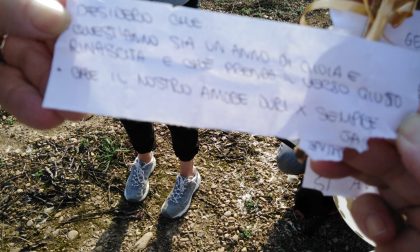 DESIDERO CHE
QUEST'ANNO SIA UN ANNO DI GIOIA E
RINASCITA E CHE PRENDA IL VERSO GIUSTO
• CHE IL NOSTRO AMORE DURI X SEMPRE